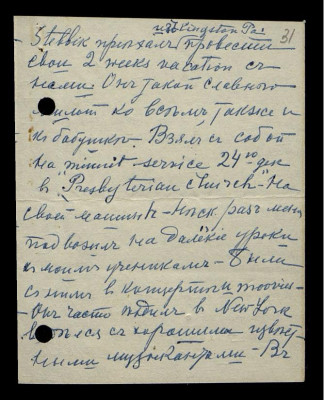 изъ Kingston Pa. 31
Стевик пріѣхалъ провести
свои 2 weeks vacation съ
нами. Онъ такой славный
милый ко всѣмъ также и
къ бабушкѣ. Взялъ съ собой
на service 24го дек
в "Presbyterian church" на
своей машинѣ - нѣск. разъ меня
подвозилъ на далёкіе уроки
къ моимъ ученикамъ - были
съ нимъ в концертѣ и movies -
Онъ часто ѣздилъ в New York
съ хорошими извѣст
ными музыкантами - Въ